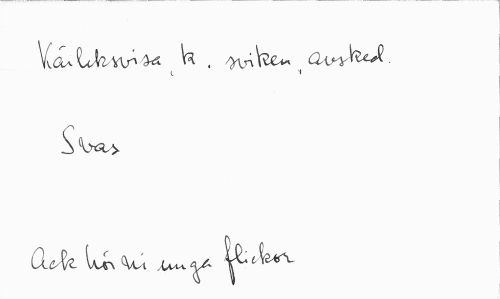 Kärleksvisa, k. sviken, avsked.
Svas
Ack hör ni unga flickor